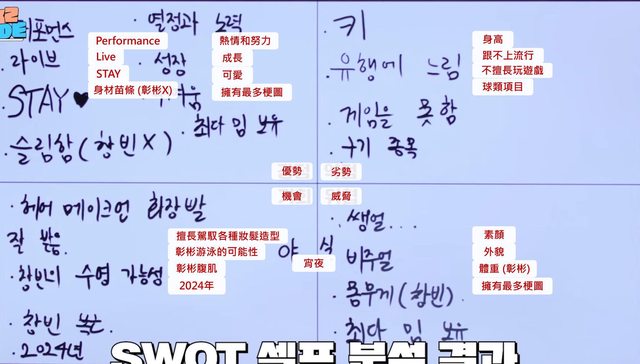 퍼포먼스
라이브
STAY ♥
슬림함 (창빈X)
열정과 노력
성장
귀여움
최다 밈 보유
Performance
Live
STAY
身材苗條 (彰彬X)
熱情和努力
成長
可愛
擁有最多梗圖
키
유행에 느림
게임을 못함
구기 종목
身高
跟不上流行
不擅長玩遊戲
球類項目
優勢
劣勢
機會
威脅
헤어 메이크업 화장발
잘 받음
창빈의 수영 가능성
창빈 복근
2024년
擅長駕馭各種妝髮造型
彰彬游泳的可能性
彰彬腹肌
2024年
야식
宵夜
쌩얼...
비주얼
몸무게 (창빈)
최다 밈 보유
素顏
外貌
體重 (彰彬)
擁有最多梗圖
SWOT 셀프 분석 결과